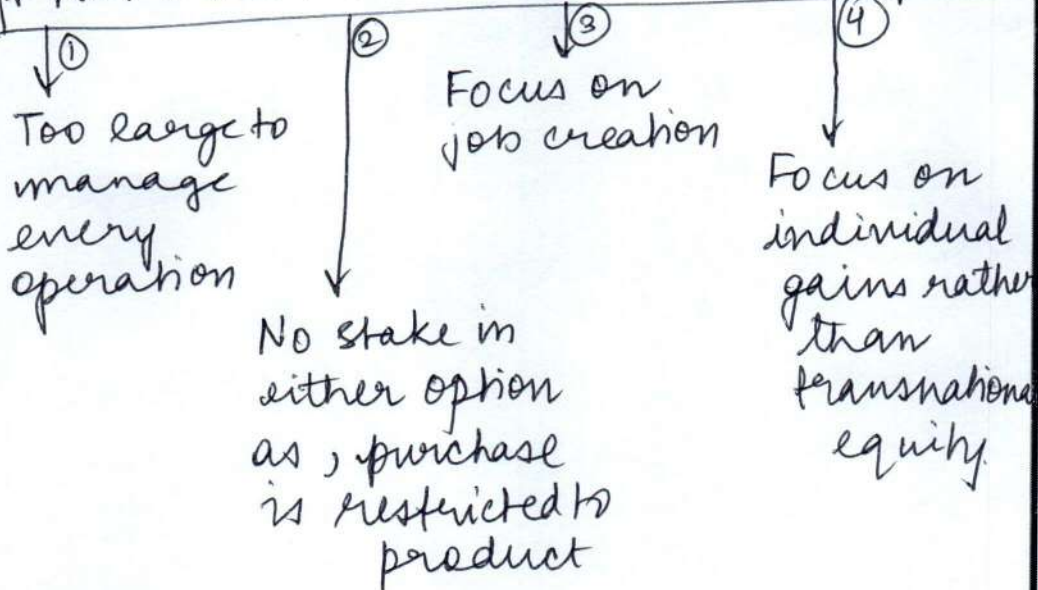 ①
Too large to
manage
every
operation
②
No stake in
either option
as, purchase
is restricted to
product
③
Focus on
job creation
④
Focus on
individual
gains rather
than
transnationa
equity.